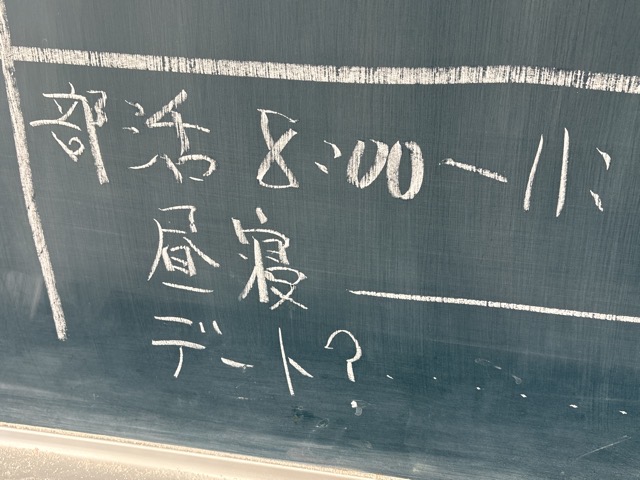 部活 8:00〜11:
昼寝
デート?